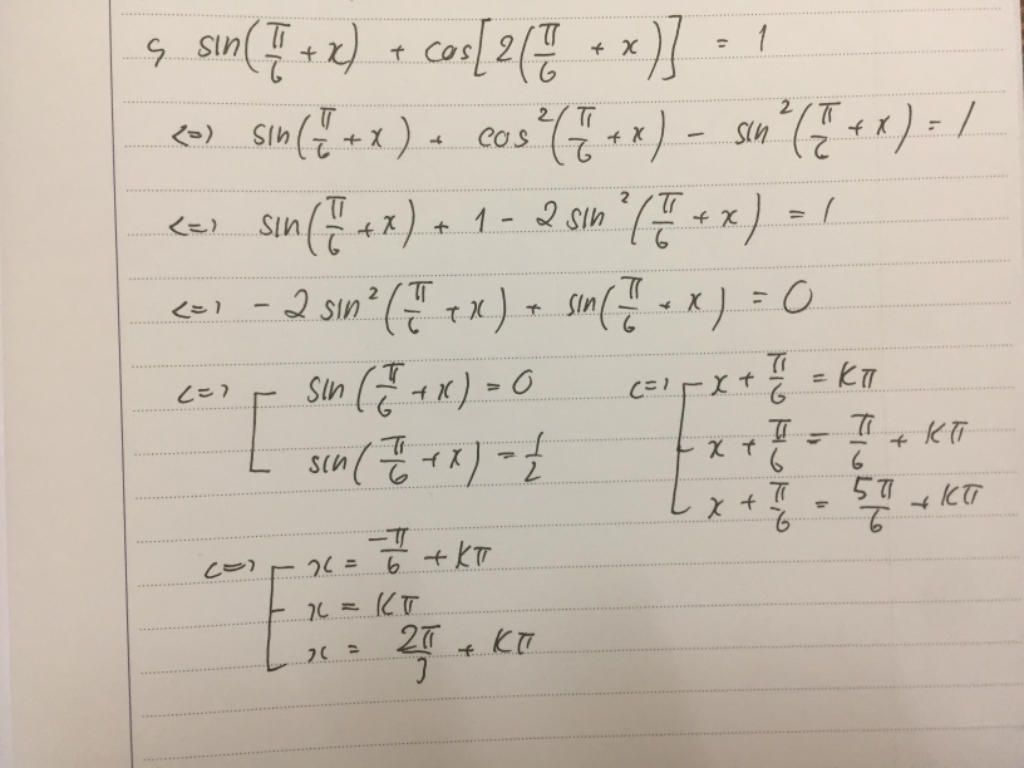 c, sin(π/6 + x) + cos[2(π/6 + x)] = 1
<=> sin(π/6 + x) + cos²(π/6 + x) - sin²(π/6 + x) = 1
<=> sin(π/6 + x) + 1 - 2 sin²(π/6 + x) = 1
<=> - 2 sin²(π/6 + x) + sin(π/6 + x) = 0
<=> [ sin(π/6 + x) = 0 <=> [ x + π/6 = Kπ
sin(π/6 + x) = 1/2 x + π/6 = π/6 + Kπ
x + π/6 = 5π/6 + Kπ
<=> [ x = -π/6 + Kπ
x = Kπ
x = 2π/3 + Kπ